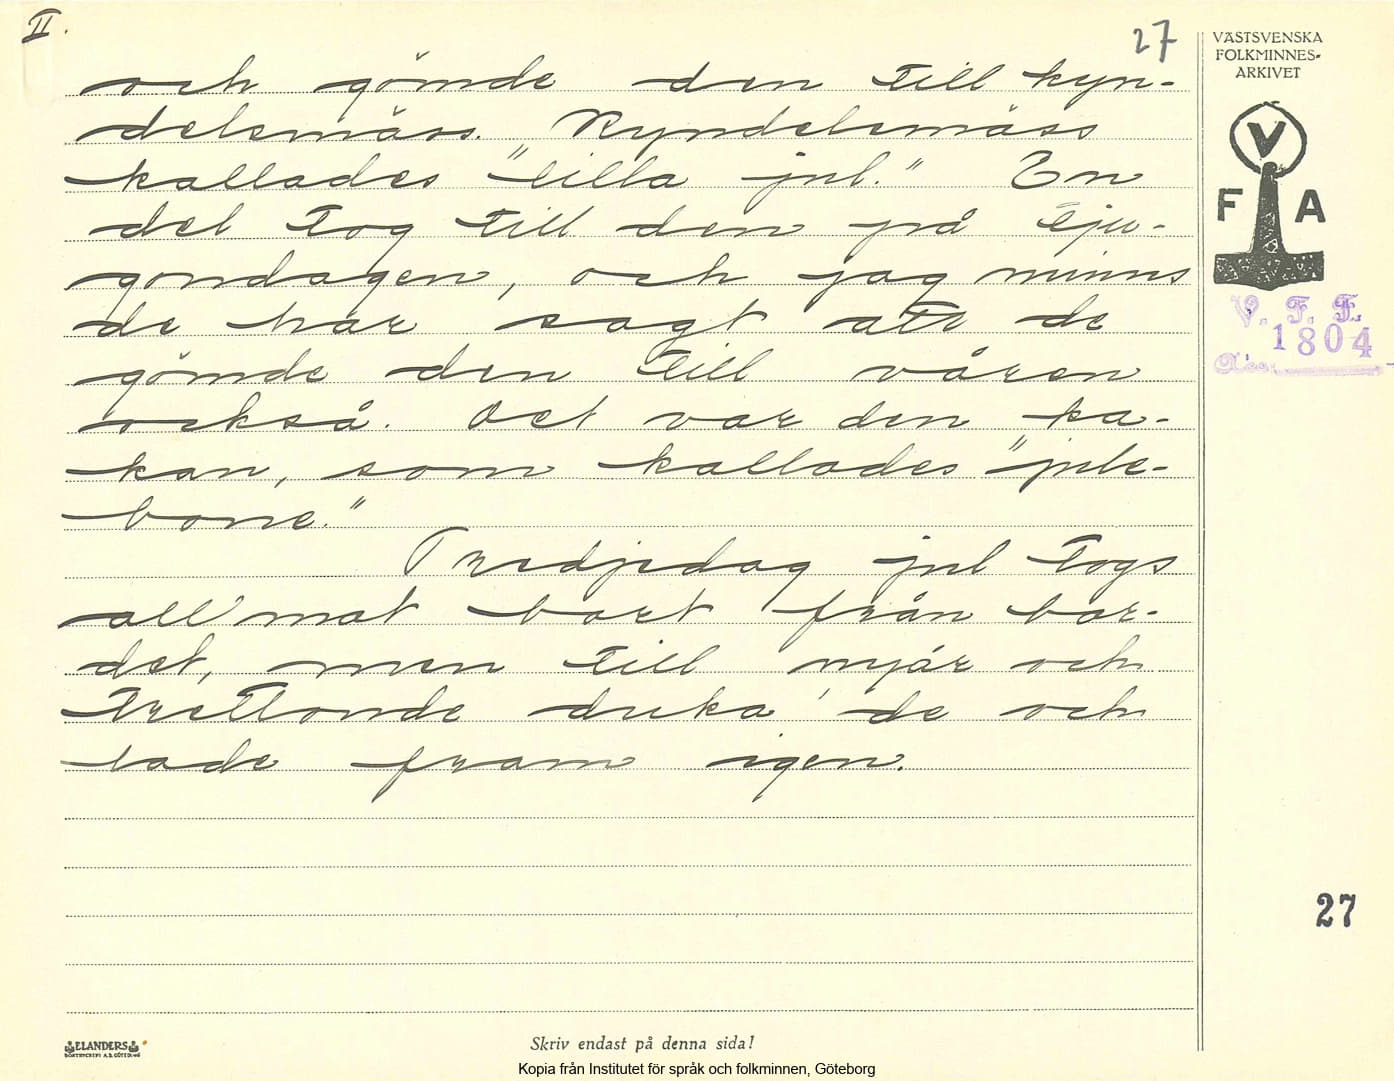 II.
27
och gömde den till kyn-
delsmäss. Kyndelsmäss
kallades "lilla jul." En
del tog till den på tju-
gondagen, och jag minns
de har sagt att de
gömde den till våren
också. Det var den ka-
kan, som kallades "jule-
bone."
Tredjedag jul togs
all mat bort från bor-
det, men till nyår och
trettonde duka' de och
lade fram igen.
VÄSTSVENSKA
FOLKMINNES-
ARKIVET
V
F A
V. F. F.
1804
27
ELANDERS
BOKTRYCKERI A.B. GÖTEBORG
Skriv endast på denna sida!
Kopia från Institutet för språk och folkminnen, Göteborg